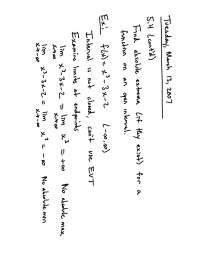 Tuesday, March 13, 2007
5.4 (cont'd)
Find absolute extrema (if they exist) for a
function on an open interval.
Ex: f(x) = x³-3x-2 (-∞,∞)
Interval is not closed, can't use EVT
Examine limits at endpoints
lim x³-3x-2 = lim x³ = +∞ No absolute max
x→∞ x→∞
lim x³-3x-2 = lim x³ = -∞ No absolute min
x→-∞ x→-∞